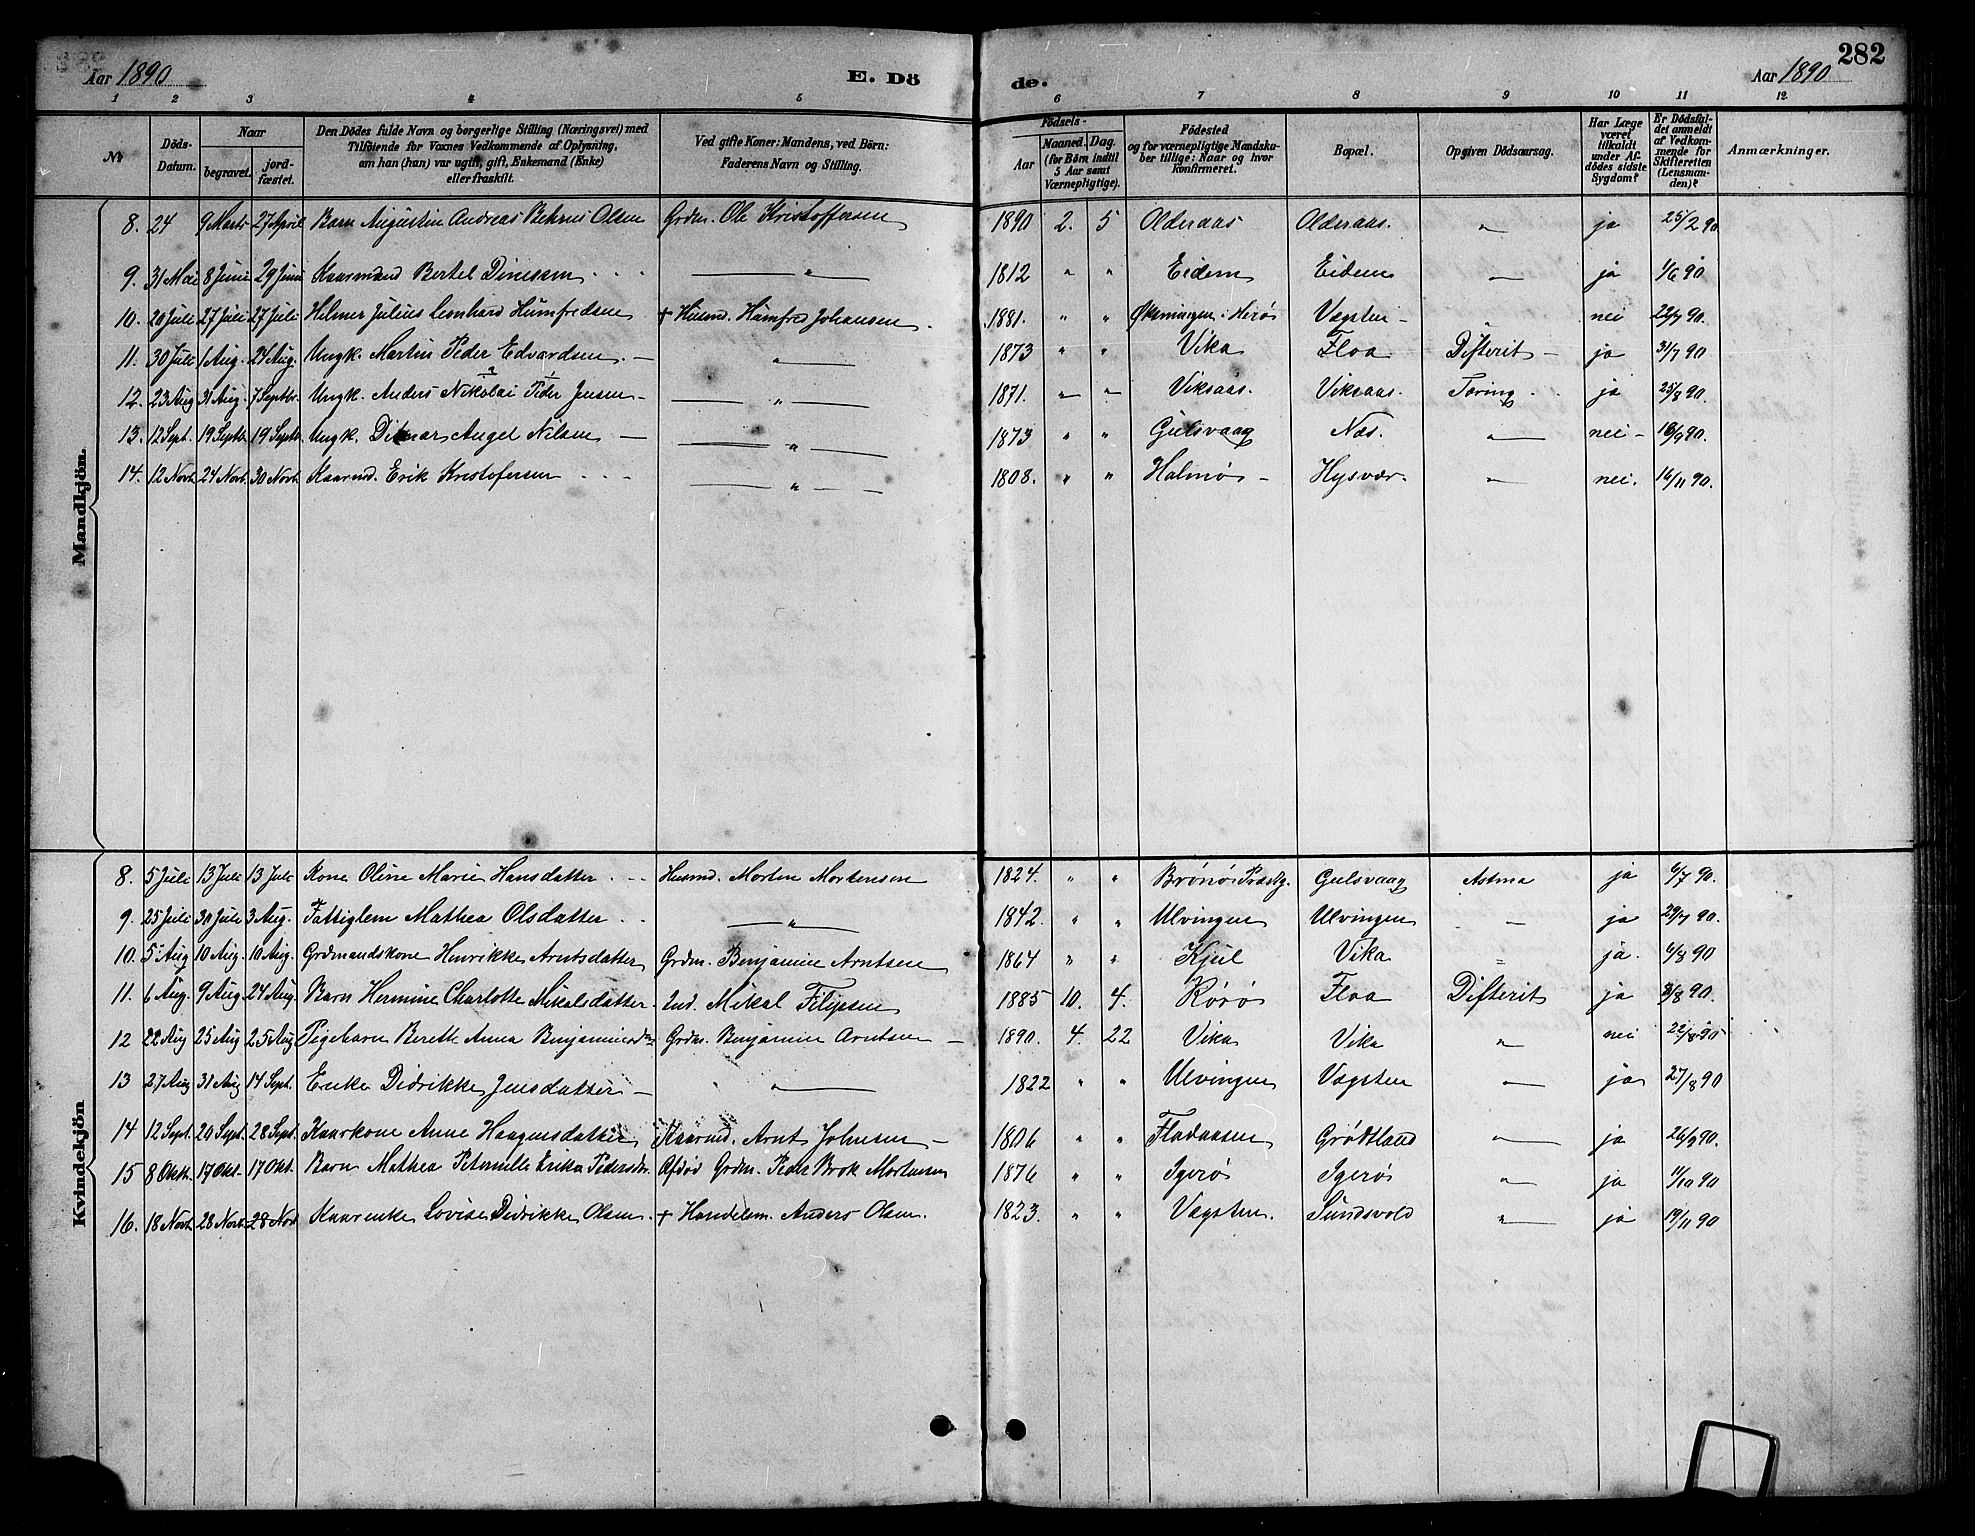 Aar 1890
E. Dö
de.
Aar 1890
282
1 2 3 4 5 6 7 8 9 10 11 12
No
Döds-
Datum.
Naar
begravet.
jord-
fæstet.
Den Dödes fulde Navn og borgerlige Stilling (Næringsvei) med
Tilföiende for Voxnes Vedkommende af Oplysning,
om han (hun) var ugift, gift, Enkemand (Enke)
eller fraskilt.
Ved gifte Koner: Mandens, ved Börn:
Faderens Navn og Stilling.
Födsels-
Aar
Maaned.
Dag.
(for Börn indtil
5 Aar samt
Værnepligtige).
Födested
og for værnepligtige Mandska-
ber tillige: Naar og hvor
konfirmeret.
Bopæl.
Opgiven Dödsaarsag.
Har Læge
været
tilkaldt
under Af-
dödes sidste
Sygdom?
Er Dödsfal-
det anmeldt
af Vedkom-
mende for
Skifteretten
(Lensman-
den)?
Anmærkninger.
Mandkjön.
8. 24 9 Marts 27 April Barn Augustin Andreas Olsen Grdm. Ole Kristoffersen 1890 2. 5 Olderaas Olderaas. " ja 25/2 90
9. 31 Mai 8 Juni 29 Juni Kaarmand Bertel Dinesen " 1812 " " Eidem Eidem — ja 1/6 90
10. 20 Juli 27 Juli 27 Juli Hilmer Julius Leonhard Humfredsen + Husmd. Humfred Johansen. 1881. " " Øksningen i Herø Vægsten — " nei 22/7 90.
11. 30 Juli 1 Aug. 24 Aug. Ungk. Martin Peder Edvardsen. — " 1873 " " Vika Floa Difterit — ja 31/7 90
12. 23 Aug 31 Aug. 7 Septbr. Ungk. Anders Nikolai Peder Jensen — " 1871. " " Viksaas. Viksaas. Tæring. ja 25/8 90.
13. 12 Sept. 19 Septb 19 Septb Ungk. Ditmar Angel Nilsen — " 1873 " " Gulsvaag Næs. " nei — 90.
14. 12 Novb. 24 Novb. 30 Novb. Kaarmd. Erik Kristofersen " 1808. " " Halmø — Hysvær. " nei. 16/11 90.
Kvindekjön
8. 5 Juli 13 Juli 13 Juli Kone Oline Marie Hansdatter. Husmd. Morten Mortensen 1824. " " Brønø Præstg. Gulsvaag Astma ja 6/7 90.
9. 25 Juli 30 Juli 3 Aug. Fattiglem Mathea Olsdatter " 1842. " " Ulvingen Ulvingen — ja 29/7 90.
10. 5 Aug 10 Aug. 10 Aug. Grdmandskone Henrikke Arntsdatter Grdm. Benjamin Arntsen 1864 " " Kjul Vika " ja. 6/8 90
11. 6 Aug. 9 Aug 24 Aug. Barn Hermine Charlotte Mikalsdatter. Ind. Mikal Filipsen 1885 10. 4. Rørø Floa Difterit ja 8/8 90.
12 22 Aug 25 Aug 25 Aug Pigebarn Berette Anna Grdm. Benjamin Arntsen — 1890. 4. 22 Vika Vika " nei 22/8 90
13 27 Aug 31 Aug 14 Sept. Enke Didrikke Jensdatter — " 1822 " " Ulvingen Vægsten " ja 27/8 90
14 12 Sept. 20 Sept. 28 Sept. Kaarkone Anne Haagensdatter Kaarmd. Arnt Johnsen — 1806 " " Fladaasen Grødtland " ja 26/9 90.
15 8 Oktb. 17 Okt. 17 Okt. Barn Mathea Peternille Erika Pedersdtr. Afdød Grdm. Peder Brok Mortensen 1876 " " Igerø Igerø " ja 11/10 90
16. 18 Novb. 28 Novb. 28 Nov Kaarenke Lovise Didrikke Olsen. + Handelsm. Anders Olsen. 1823. " " Vægsten. Sundsvold " ja 19/11 90